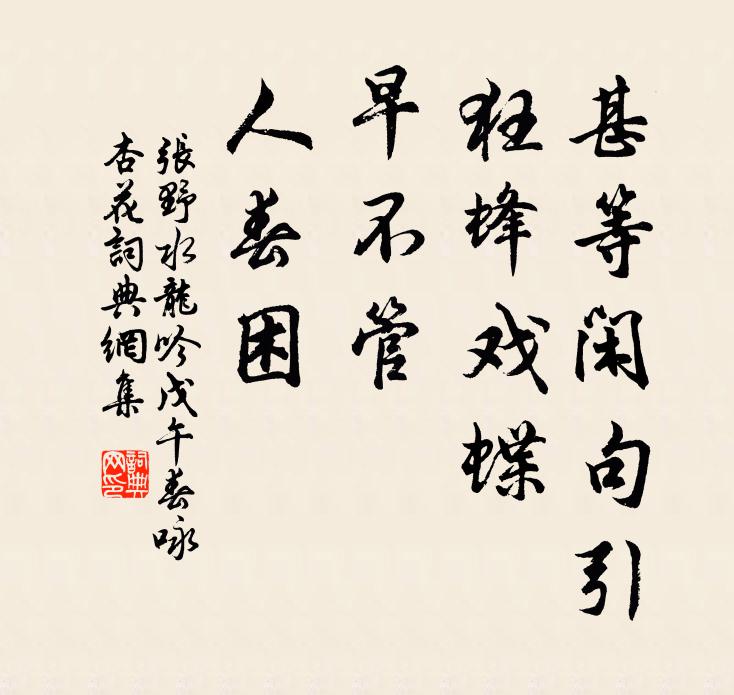 甚等闲句引
狂蜂戏蝶
早不管
人春困
張野水龍吟戊午春咏
杏花詞典網集
詞典网印